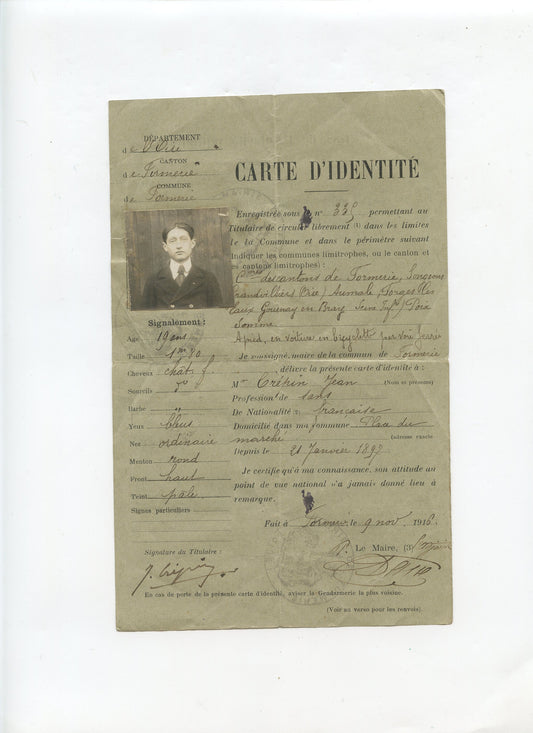 DÉPARTEMENT
de l'Oise
CANTON
de Formerie
COMMUNE
de Formerie
CARTE D'IDENTITÉ
Enregistrée sous le n° 335 permettant au
Titulaire de circuler librement (1) dans les limites
de la Commune et dans le périmètre suivant
(Indiquer les communes limitrophes, ou le canton et
les cantons limitrophes) :
Cnes des cantons de Formerie, Songeons
Grandvilliers (Oise) Aumale, Forges les
eaux Gournay en Bray Seine Infre) Poix
Somme
A pied, en voiture en bicyclette par voie ferrée
Je soussigné, maire de la commune de Formerie
, délivre la présente carte d'identité à :
Mr Créhin Jean (Nom et prénoms)
Profession de sans
De Nationalité française
Domicilié dans ma commune Place du
marché (adresse exacte)
Depuis le 21 Janvier 1897
Je certifie qu'à ma connaissance, son attitude au
point de vue national n'a jamais donné lieu à
remarque.
Fait à Formerie le 9 nov. 1916
P. Le Maire, (3)
Signalement :
Age 19 ans
Taille 1m 80
Cheveux chât. f.
Sourcils do
Barbe "
Yeux bleus
Nez ordinaire
Menton rond
Front haut
Teint pâle
Signes particuliers
Signature du Titulaire :
En cas de perte de la présente carte d'identité, aviser la Gendarmerie la plus voisine.
(Voir au verso pour les renvois).